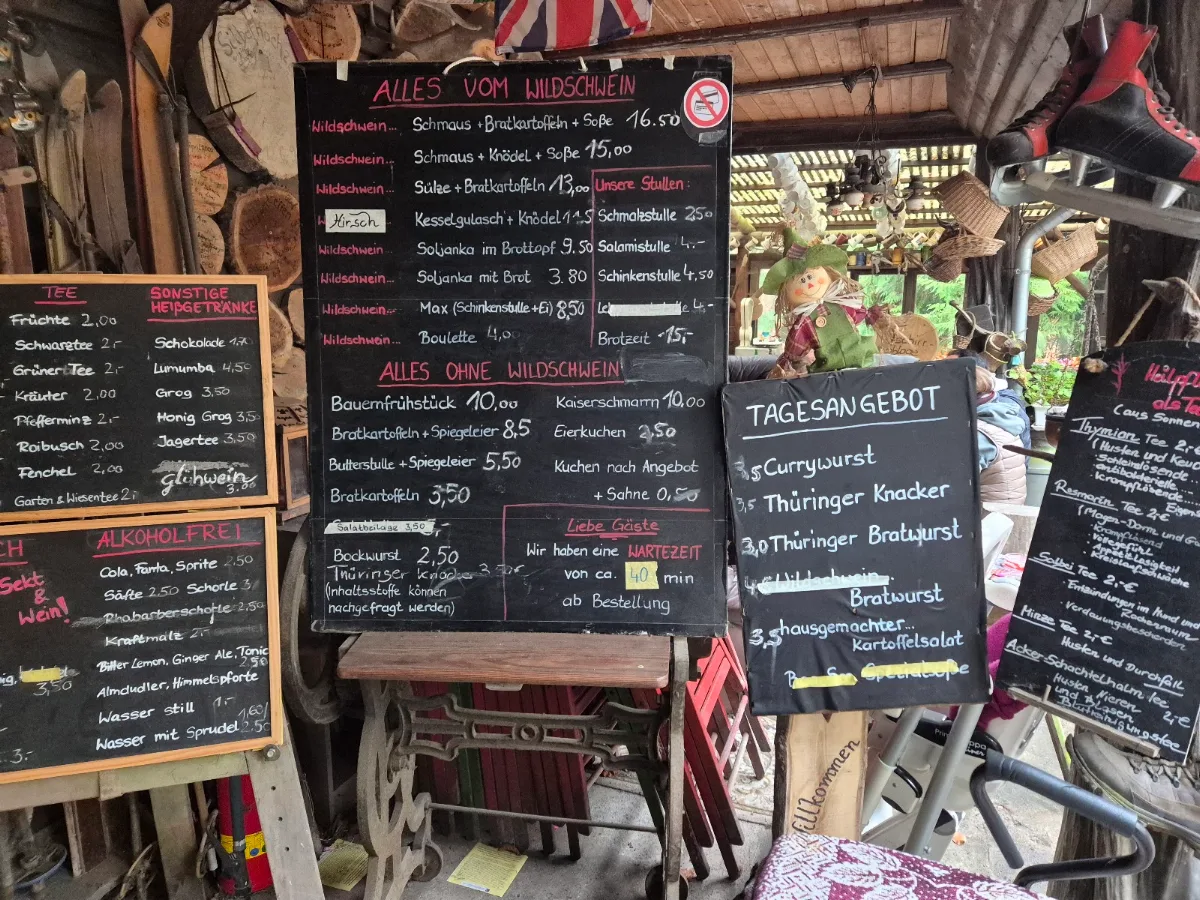 TEE
Früchte 2,00
Schwarztee 2,-
Grüner Tee 2,-
Kräuter 2,00
Pfefferminz 2,-
Roibusch 2,00
Fenchel 2,00
Garten & Wiesentee 2,-
SONSTIGE
HEIßGETRÄNKE
Schokolade 1,70
Lumumba 4,50
Grog 3,50
Honig Grog 3,50
Jagertee 3,50
Glühwein
3,00
Sekt
&
Wein!
3,50
3.-
ALKOHOLFREI
Cola, Fanta, Sprite 2,50
Säfte 2.50 Schorle
Rhabarberschorle 2,50
Kraftmalz 2,-
Bitter Lemon, Ginger Ale, Tonic
2,50
Almdudler, Himmelspforte
Wasser still 1,-
1,60
Wasser mit Sprudel 2,50
ALLES VOM WILDSCHWEIN
Wildschwein... Schmaus + Bratkartoffeln + Soße 16.50
Wildschwein... Schmaus + Knödel + Soße 15,00
Wildschwein... Sülze + Bratkartoffeln 13,00
Hirsch Kesselgulasch + Knödel
Wildschwein... Soljanka im Brottopf 9.50
Wildschwein... Soljanka mit Brot 3.80
Wildschwein... Max (Schinkenstulle + Ei) 8,50
Wildschwein... Boulette 4,00
Unsere Stullen:
Schmalzstulle 2,50
Salamistulle 4.-
Schinkenstulle 4,50
4.-
Brotzeit 15,-
ALLES OHNE WILDSCHWEIN
Bauernfrühstück 10,00
Bratkartoffeln + Spiegeleier 8,5
Butterstulle + Spiegeleier 5,50
Bratkartoffeln 3,50
Salatbeilage 3,50
Bockwurst 2,50
Thüringer Knacker
(Inhaltsstoffe können
nachgefragt werden)
Kaiserschmarrn 10,00
Eierkuchen 2,50
Kuchen nach Angebot
+ Sahne 0,50
Liebe Gäste
Wir haben eine WARTEZEIT
von ca. 40 min
ab Bestellung
TAGESANGEBOT
3,5 Currywurst
3,5 Thüringer Knacker
3,0 Thüringer Bratwurst
Wildschwein
Bratwurst
3,5 hausgemachter...
Kartoffelsalat
Willkommen
Thymian Tee 2,-€
Rosmarin Tee 2,-€
Salbei Tee 2,-€
Entzündungen im Mund und
Rachenraum
Verdauungsbeschwerden
Minze Tee 2,-€
Husten und Durchfall
Acker-Schachtelhalm Tee
2,-€
Husten Nieren
und Blasen
Blutreinigungstee